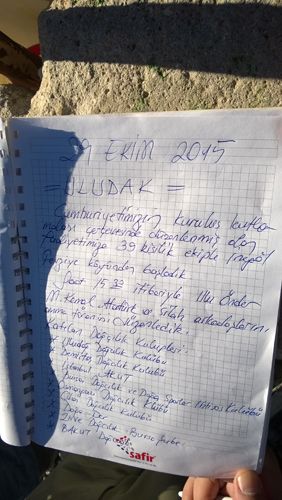 29 EKİM 2015
= ULUDAK =
Cumhuriyetimizin kuruluş kutla-
ması çerçevesinde düzenlenmiş olan
faaliyetimize 39 kişilik ekiple
köyünden başladık
Saat 15:30 itibariyle Ulu Önder
M. Kemal Atatürk ve silah arkadaşlarını
anma törenini düzenledik.
Katılan Dağcılık Kulüpleri:
* Uludağ Dağcılık Kulübü
* Dağcılık Kulübü
* İstanbul AKUT
* Dağcılık ve Doğa Sporları İhtisas Kulübü
* Dağcılık Kulübü
* Dağcılık Kulübü
* Doğa Der
* Zirve Dağcılık Bursa Şube
BAKUT
safir